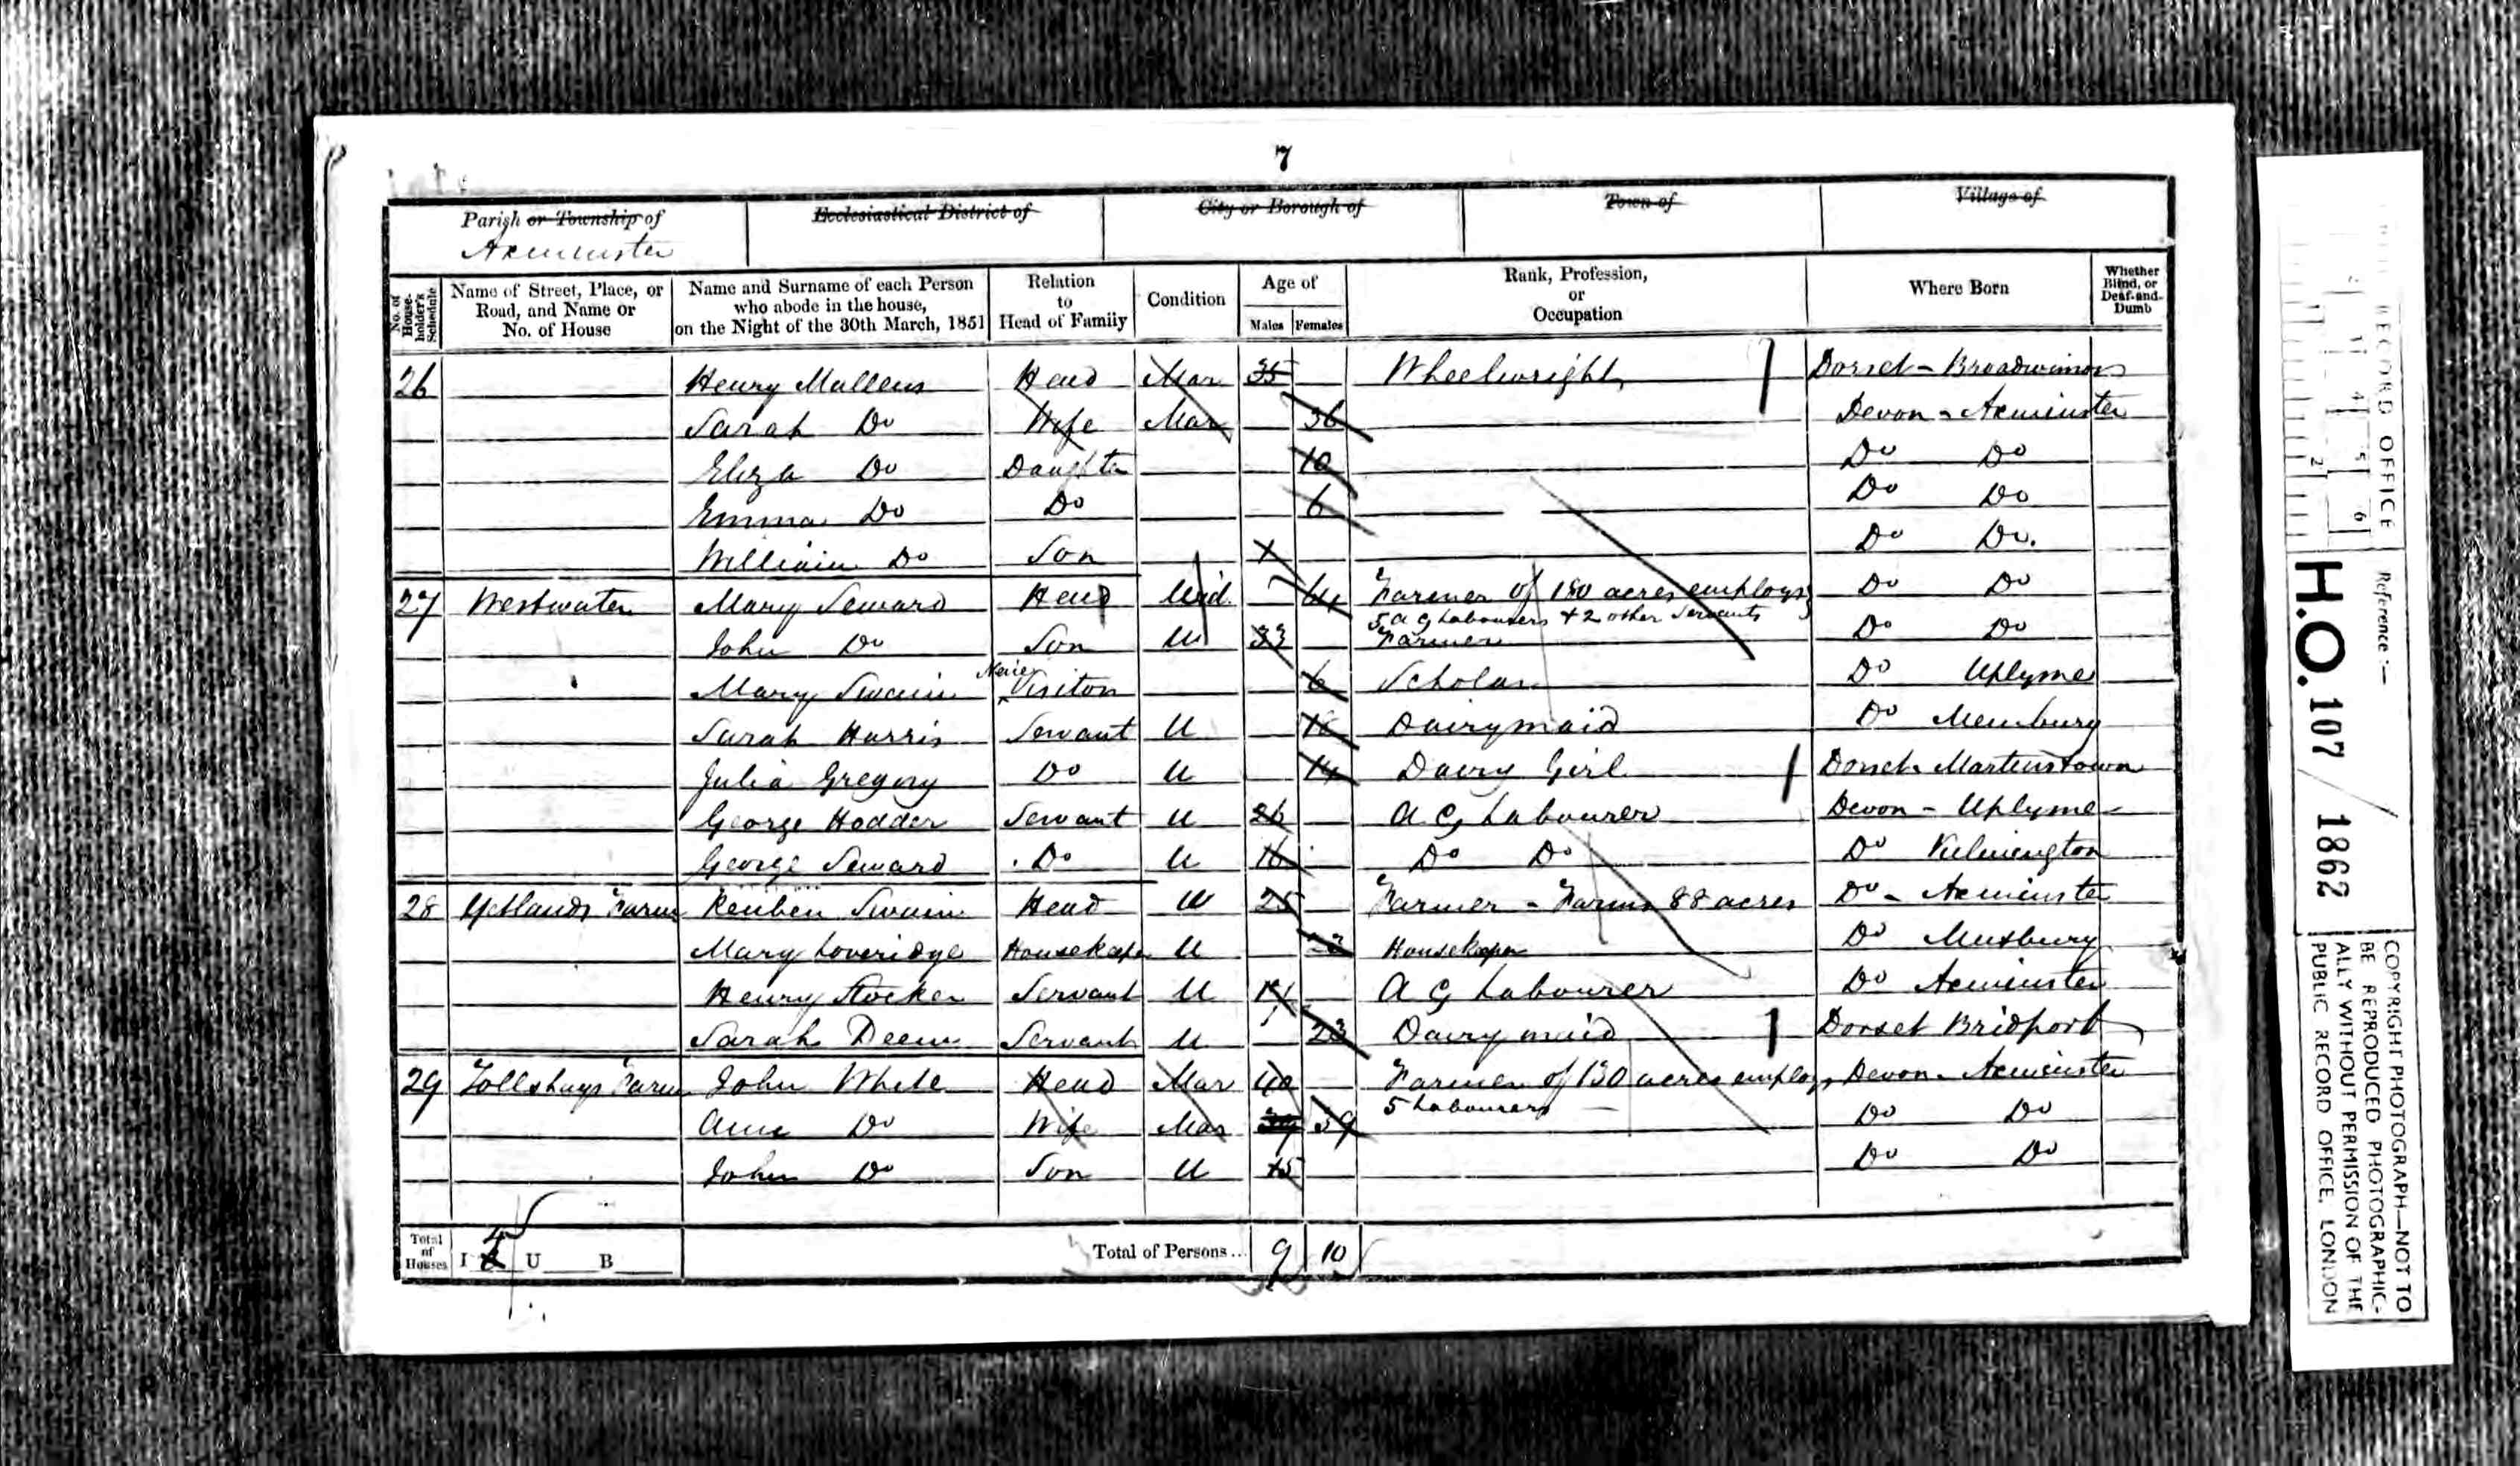 7
Parish or Township of Ecclesiastical District of City or Borough of Town of Village of
Axminster
No. of House-holder's Schedule Name of Street, Place, or Road, and Name or No. of House Name and Surname of each Person who abode in the house, on the Night of the 30th March, 1851 Relation to Head of Family Condition Age of Males Females Rank, Profession, or Occupation Where Born Whether Blind, or Deaf-and-Dumb
26 Henry Mullens Head Mar 35 Wheelwright Dorset - Broadwinsor
Sarah Do Wife Mar 36 Devon - Axminster
Eliza Do Daughter 10 Do Do
Emma Do Do 6 Do Do
William Do Son Do Do.
27 Westwater Mary Seward Head Wid. 64 Farmer of 180 acres employs Do Do
5 Ag Labourers & 2 other Servants
John Do Son U 33 Farmer Do Do
Mary Swain Neice Visitor 6 Scholar Do Uplyme
Sarah Harris Servant U 18 Dairymaid Do Membury
Julia Gregory Do U 14 Dairy Girl Dorset Martinstown
George Hodder Servant U 26 Ag Labourer Devon - Uplyme
George Seward Do U 16 Do Do Do Kilmington
28 Yetlands Farm Reuben Swain Head U 25 Farmer - Farms 88 acres Do - Axminster
Mary Loveridge Housekeeper U Housekeeper Do Musbury
Henry Stocker Servant U Ag Labourer Do Axminster
Sarah Deem Servant U 23 Dairy maid Dorset Bridport
29 Tollshays Farm John White Head Mar 40 Farmer of 130 acres employs Devon - Axminster
5 Labourers
Ann Do Wife Mar 39 39 Do Do
John Do Son U 15 Do Do
Total of Houses I 4 U B Total of Persons... 9 10
RECORD OFFICE
1 2 4 5 6
Reference:-
H.O. 107 / 1862
COPYRIGHT PHOTOGRAPH—NOT TO
BE REPRODUCED PHOTOGRAPHIC-
ALLY WITHOUT PERMISSION OF THE
PUBLIC RECORD OFFICE, LONDON